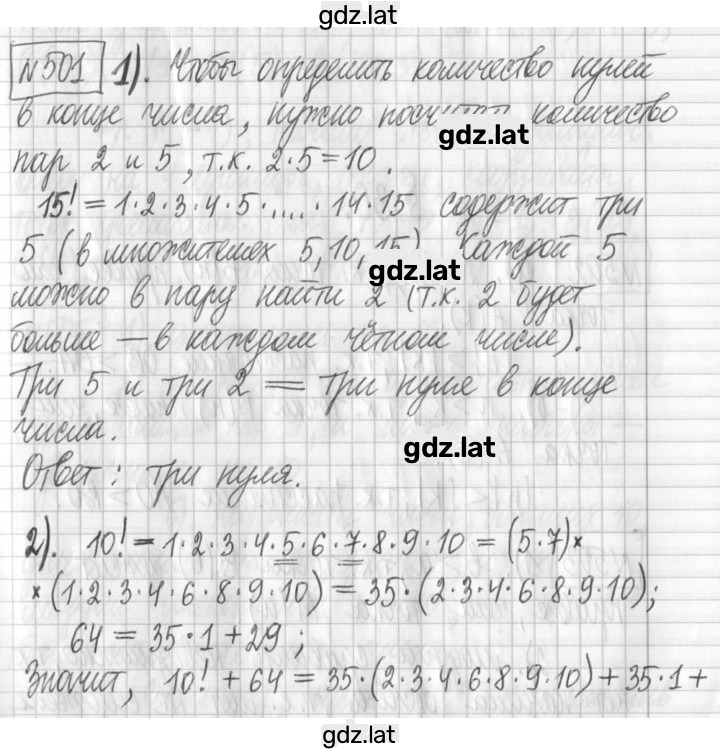 gdz.lat
№501 1). Чтобы определить количество нулей
в конце числа, нужно количество
gdz.lat
пар 2 и 5, т.к. 2·5=10.
15! = 1·2·3·4·5·....·14·15 содержит три
5 (в множителях 5, 10, 15). Каждой 5
gdz.lat
можно в пару найти 2 (т.к. 2 будет
больше — в каждом чётном числе).
Три 5 и три 2 = три нуля в конце
числа.
gdz.lat
Ответ: три нуля.
2). 10! = 1·2·3·4·5·6·7·8·9·10 = (5·7)×
×(1·2·3·4·6·8·9·10) = 35·(2·3·4·6·8·9·10);
64 = 35·1+29;
Значит, 10! + 64 = 35·(2·3·4·6·8·9·10)+35·1+
gdz.lat